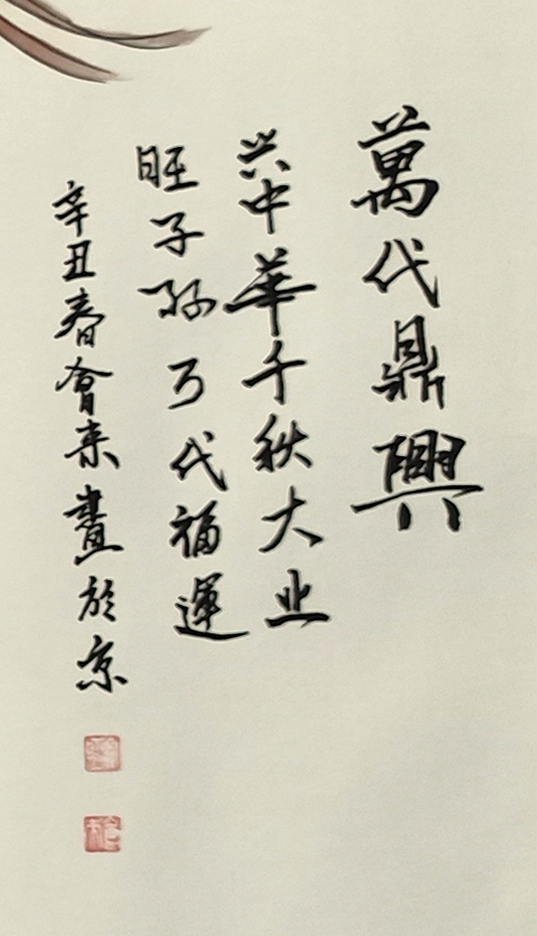 萬代鼎興
兴中華千秋大业
旺子孙万代福運
辛丑春會来畫於京